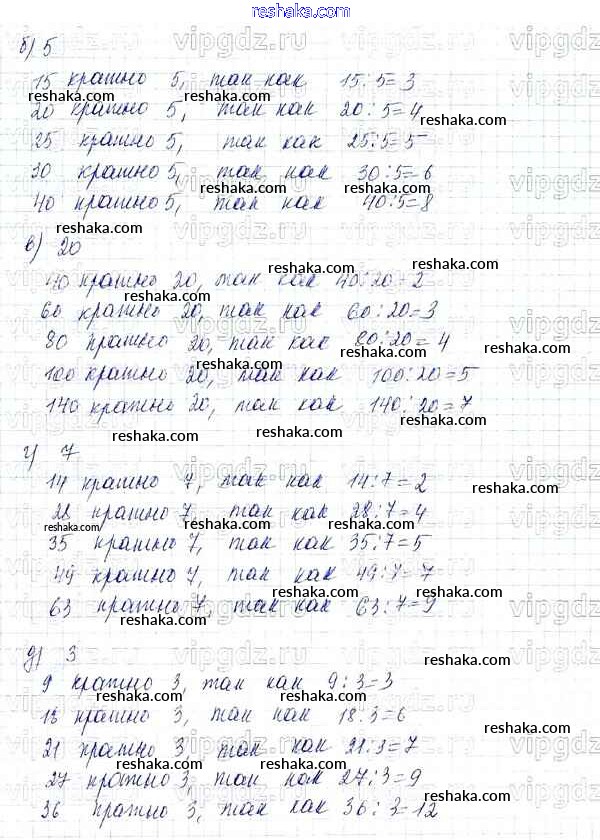 reshaka.com
б) 5
15 кратно 5, так как 15:5=3
20 кратно 5, так как 20:5=4
25 кратно 5, так как 25:5=5
30 кратно 5, так как 30:5=6
40 кратно 5, так как 40:5=8
в) 20
40 кратно 20, так как 40:20=2
60 кратно 20, так как 60:20=3
80 кратно 20, так как 80:20=4
100 кратно 20, так как 100:20=5
140 кратно 20, так как 140:20=7
г) 7
14 кратно 7, так как 14:7=2
28 кратно 7, так как 28:7=4
35 кратно 7, так как 35:7=5
49 кратно 7, так как 49:7=7
63 кратно 7, так как 63:7=9
д) 3
9 кратно 3, так как 9:3=3
18 кратно 3, так как 18:3=6
21 кратно 3, так как 21:3=7
27 кратно 3, так как 27:3=9
36 кратно 3, так как 36:3=12